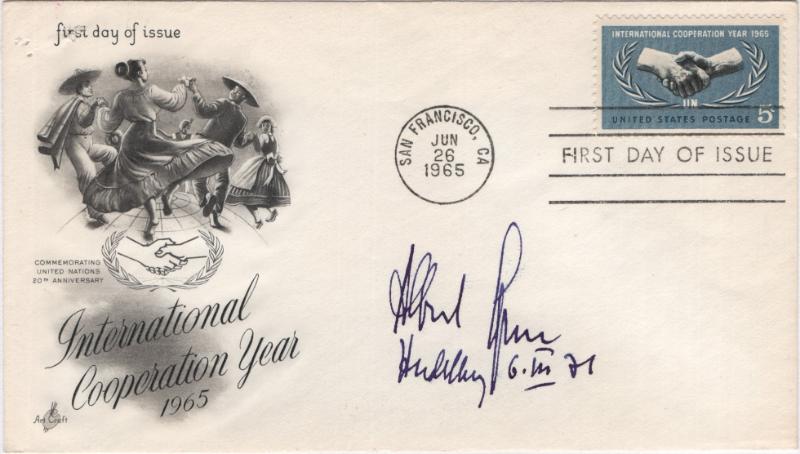 first day of issue
INTERNATIONAL COOPERATION YEAR 1965
UN
5c
UNITED STATES POSTAGE
SAN FRANCISCO, CA
JUN
26
1965
FIRST DAY OF ISSUE
COMMEMORATING
UNITED NATIONS
20TH ANNIVERSARY
International
Cooperation Year
1965
Art Craft
Albert
6. III 71